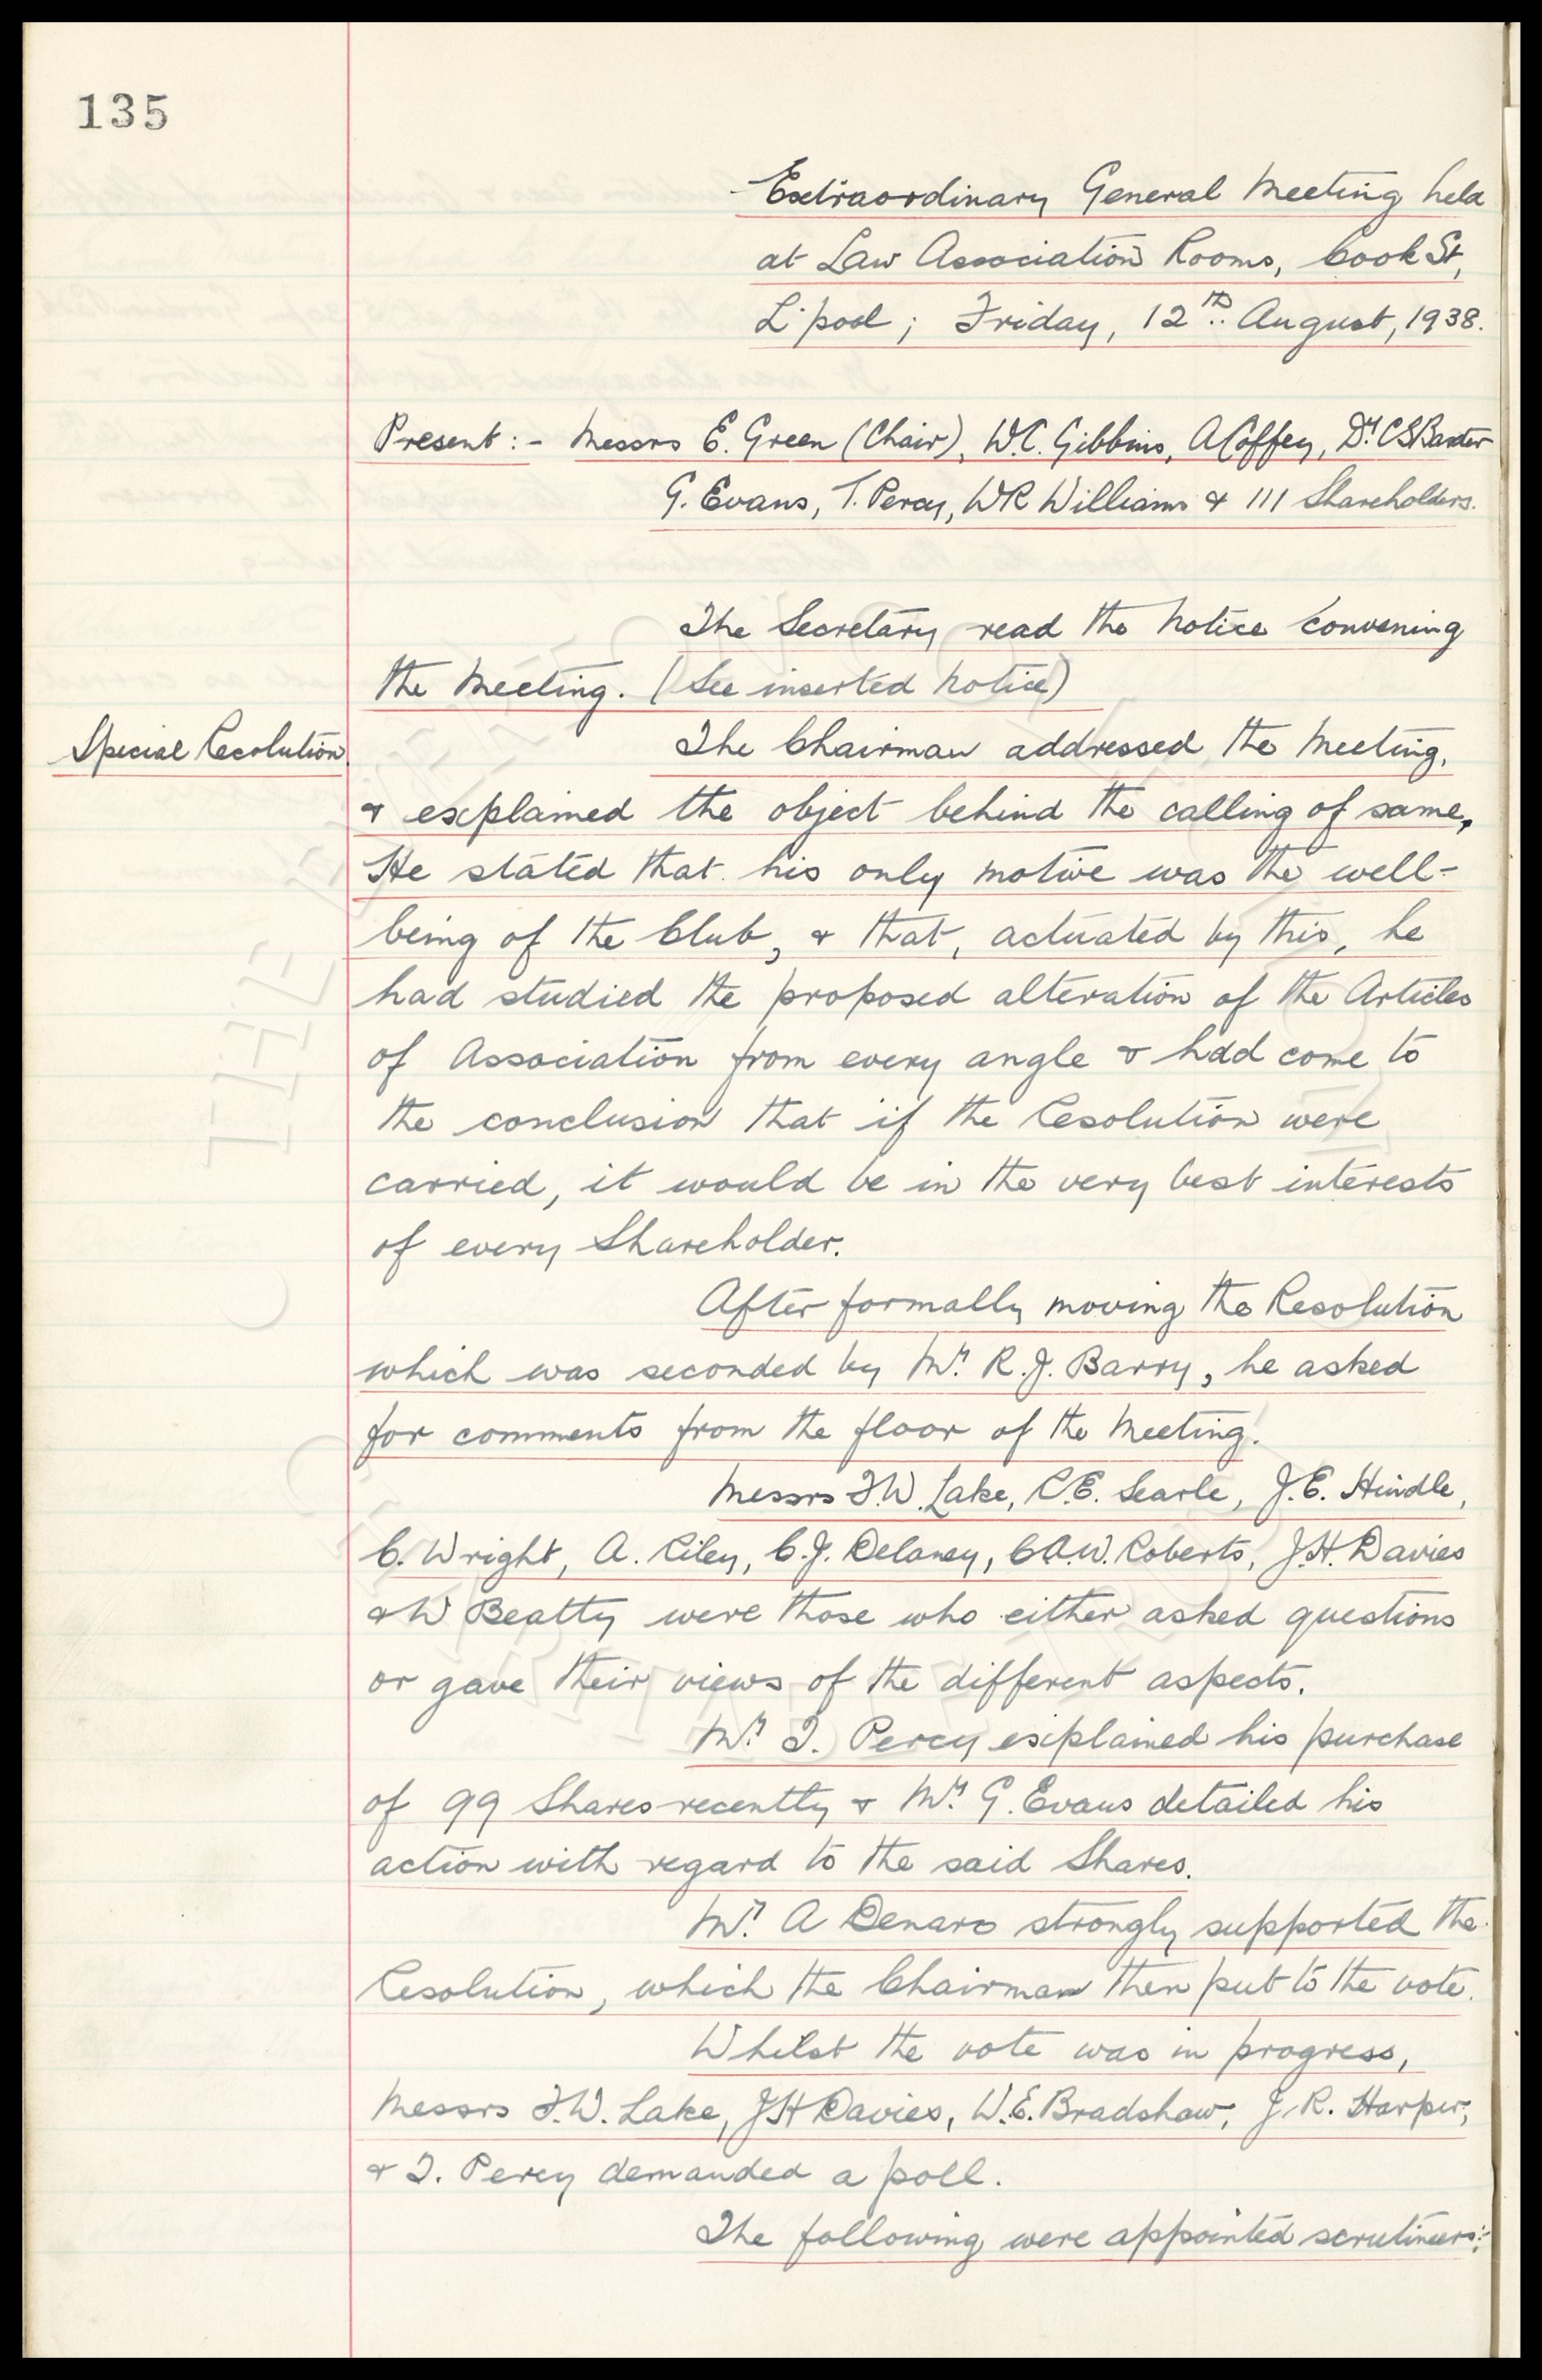 135
Extraordinary General Meeting held
at Law Association Rooms, Cook St,
L'pool; Friday, 12th. August, 1938.
Present:- Messrs E. Green (Chair), W.C. Gibbins, A Coffey, Dr. C S Baxter
G. Evans, T. Percy, W R Williams & 111 Shareholders.
The Secretary read the Notice convening
the Meeting. (See inserted Notice)
Special Resolution
The Chairman addressed the Meeting,
& explained the object behind the calling of same.
He stated that his only motive was the well-
being of the Club, & that, actuated by this, he
had studied the proposed alteration of the Articles
of Association from every angle & had come to
the conclusion that if the Resolution were
carried, it would be in the very best interests
of every Shareholder.
After formally moving the Resolution
which was seconded by Mr. R.J. Barry, he asked
for comments from the floor of the Meeting.
Messrs F.W. Lake, C.E. Searle, J.E. Hindle,
C. Wright, A. Riley, C.J. Delaney, C A.W. Roberts, J.H. Davies
& W Beatty were those who either asked questions
or gave their views of the different aspects.
Mr. T. Percy explained his purchase
of 99 Shares recently & Mr. G. Evans detailed his
action with regard to the said Shares.
Mr. A Denaro strongly supported the
Resolution, which the Chairman then put to the vote.
Whilst the vote was in progress,
Messrs F.W. Lake, J H Davies, W.E. Bradshaw, J.R. Harper,
& T. Percy demanded a poll.
The following were appointed scrutineers:-